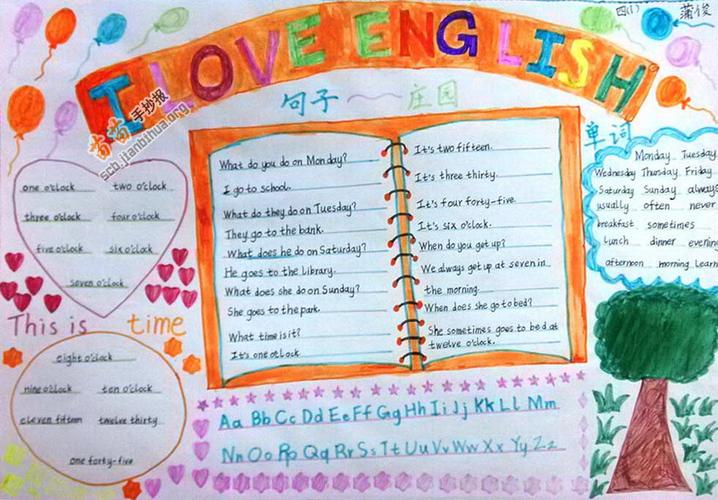 I LOVE ENGLISH
四(1) 蒲俊
苗苗手抄报
scb.jianbihua.org
句子 庄园
单词
one o'clock two o'clock
three o'clock four o'clock
five o'clock six o'clock
seven o'clock
This is time
eight o'clock
nine o'clock ten o'clock
eleven fifteen twelve thirty
one forty-five
What do you do on Monday?
I go to school.
What do they do on Tuesday?
They go to the bank.
What does he do on Saturday?
He goes to the library.
What does she do on Sunday?
She goes to the park.
What time is it?
It's one o'clock
It's two fifteen.
It's three thirty.
It's four forty-five.
It's six o'clock.
When do you get up?
We always get up at seven in
the morning.
When does she go to bed?
She sometimes goes to bed at
twelve o'clock.
Monday Tuesday
Wednesday Thursday Friday
Saturday Sunday always
usually often never
breakfast sometimes
lunch dinner evening
afternoon morning Learn
Aa Bb Cc Dd Ee Ff Gg Hh Ii Jj Kk Ll Mm
Nn Oo Pp Qq Rr Ss Tt Uu Vv Ww Xx Yy Zz